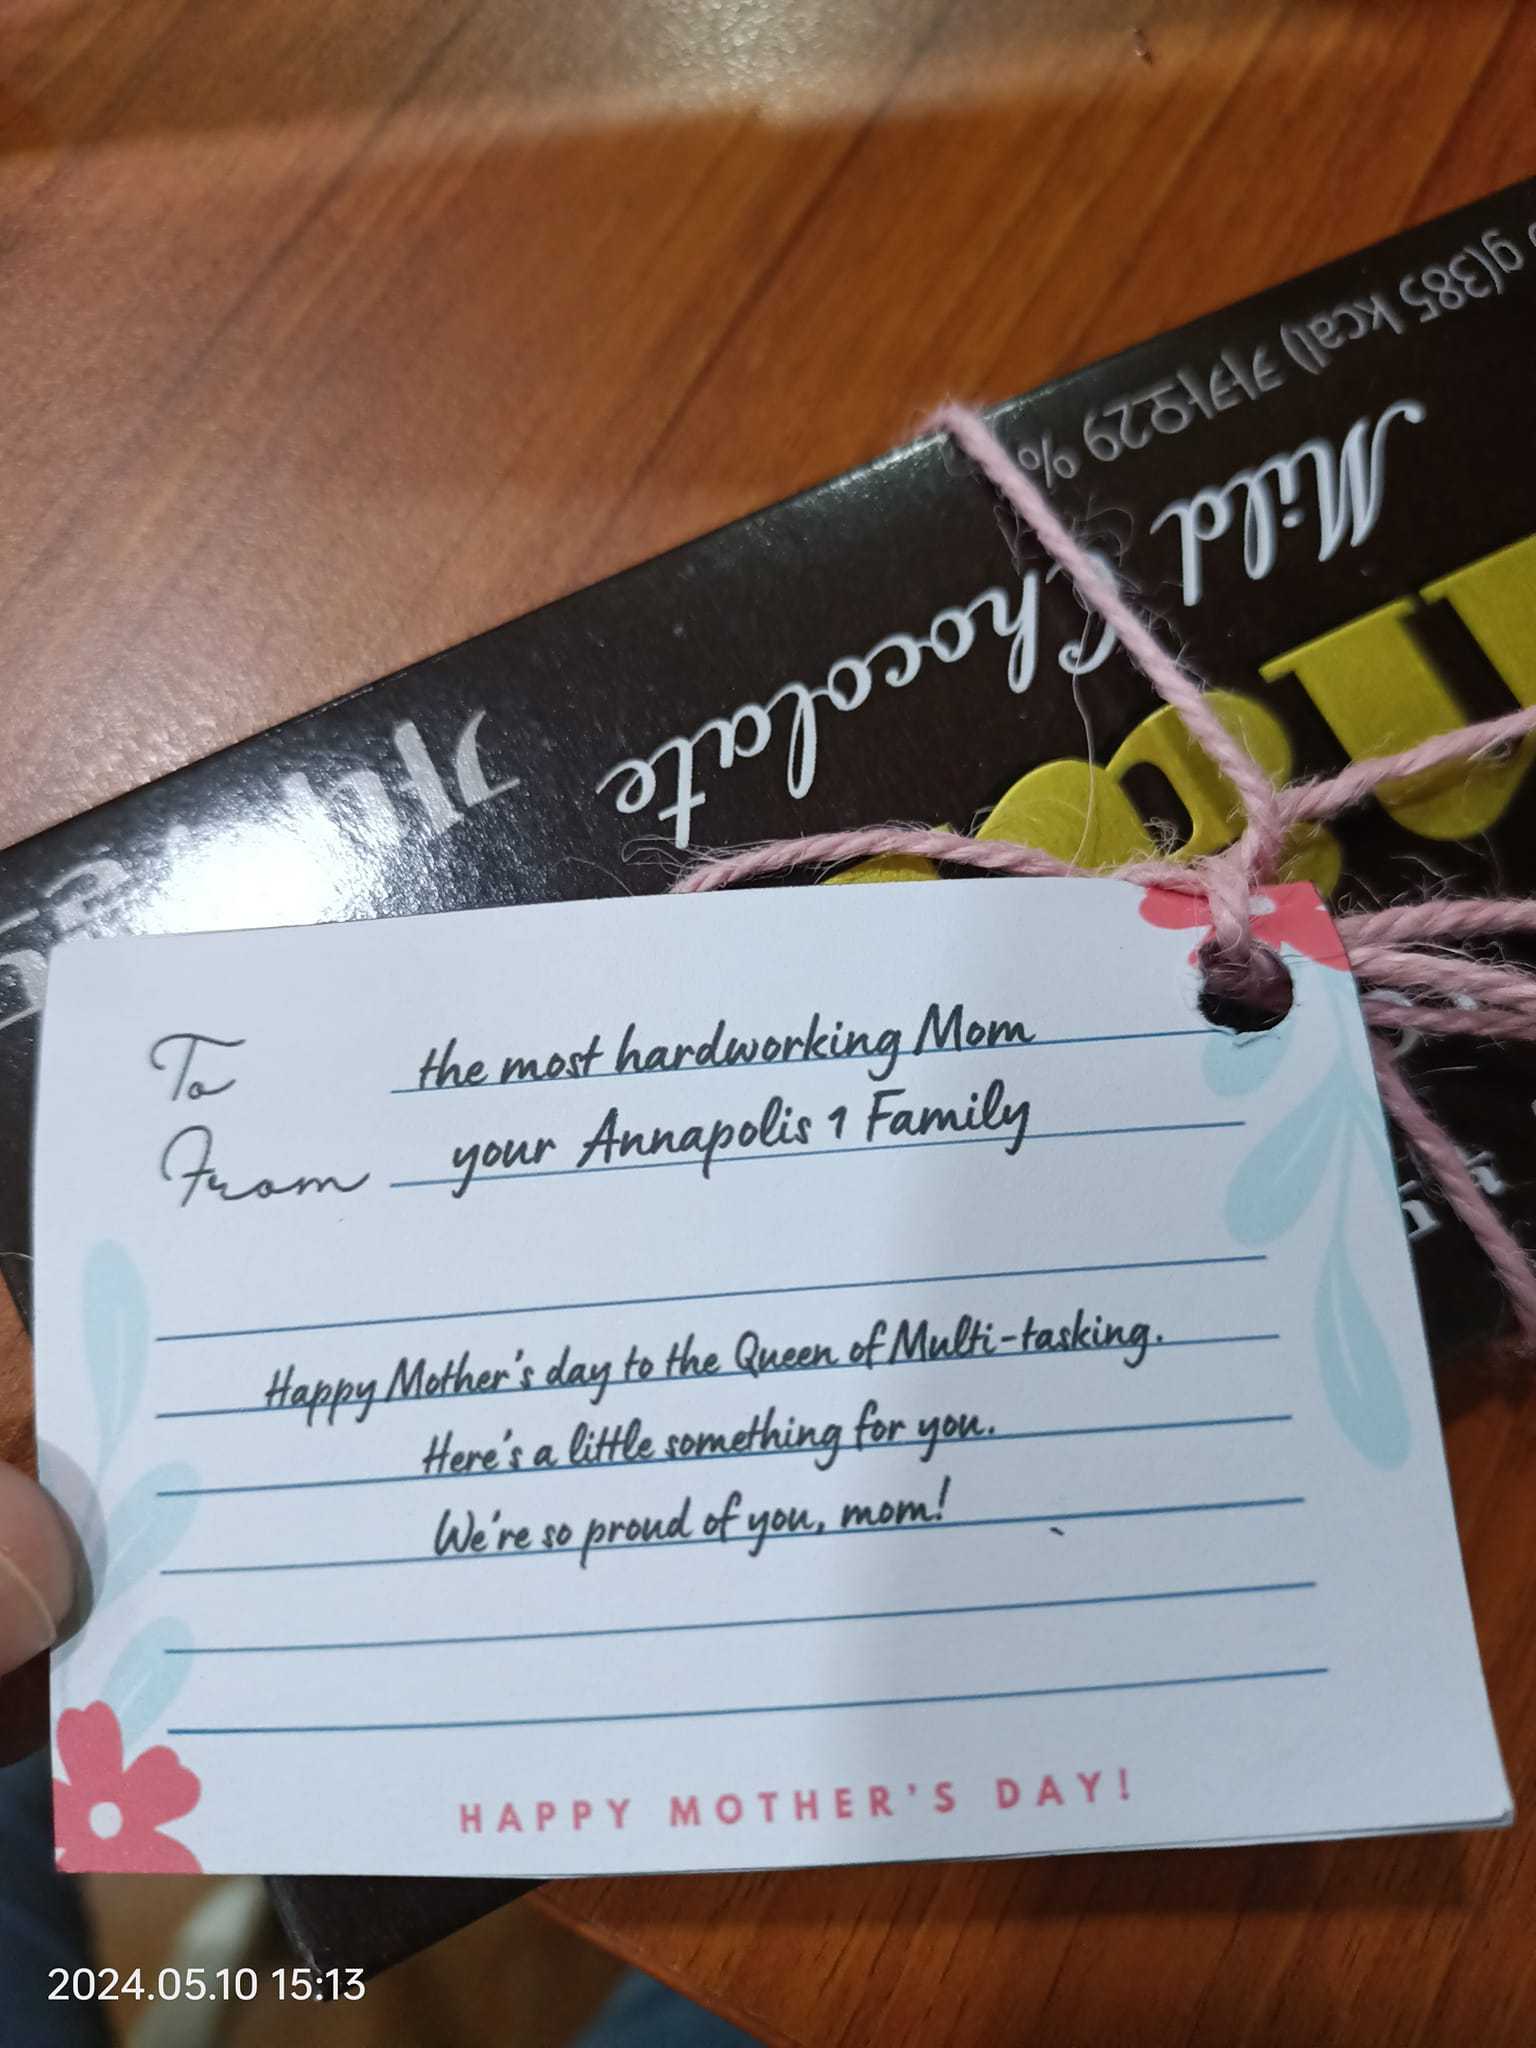 g(385 kcal) 카카오29 %
Mild Chocolate
가나
To the most hardworking Mom
From your Annapolis 1 Family
Happy Mother's day to the Queen of Multi-tasking.
Here's a little something for you.
We're so proud of you, mom!
HAPPY MOTHER'S DAY!
2024.05.10 15:13